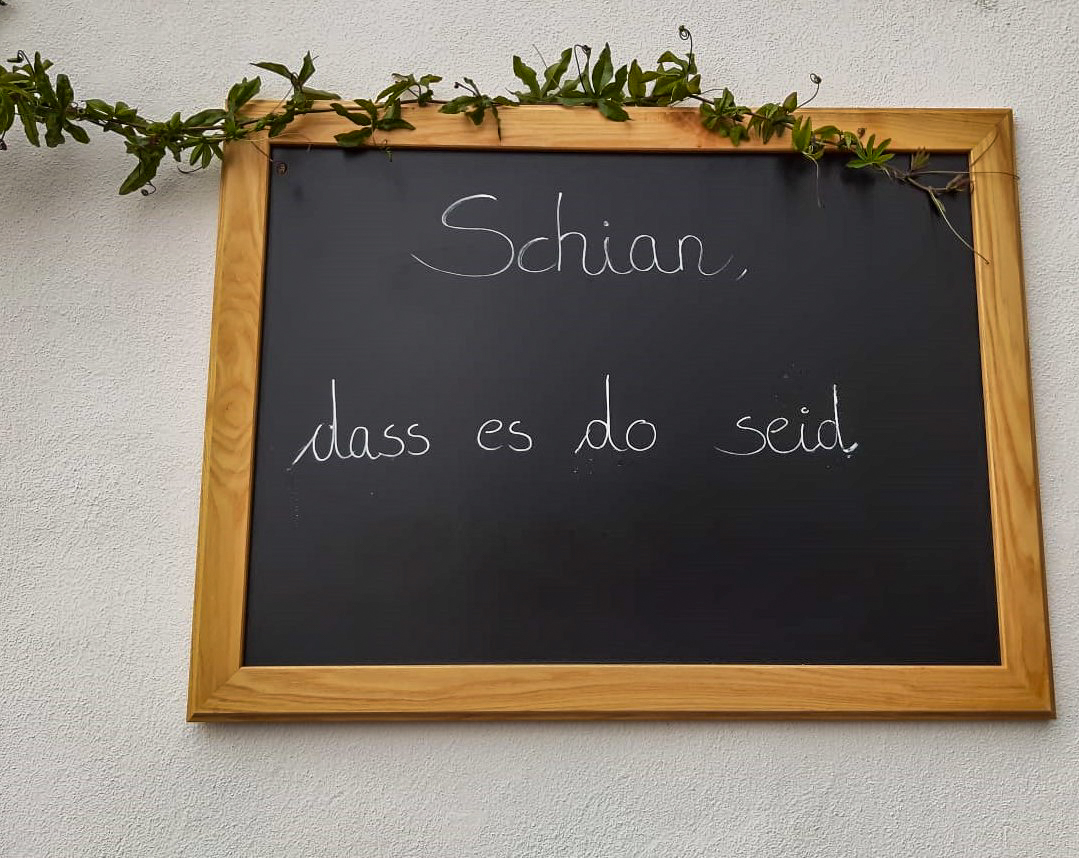 Schian,
dass es do seid